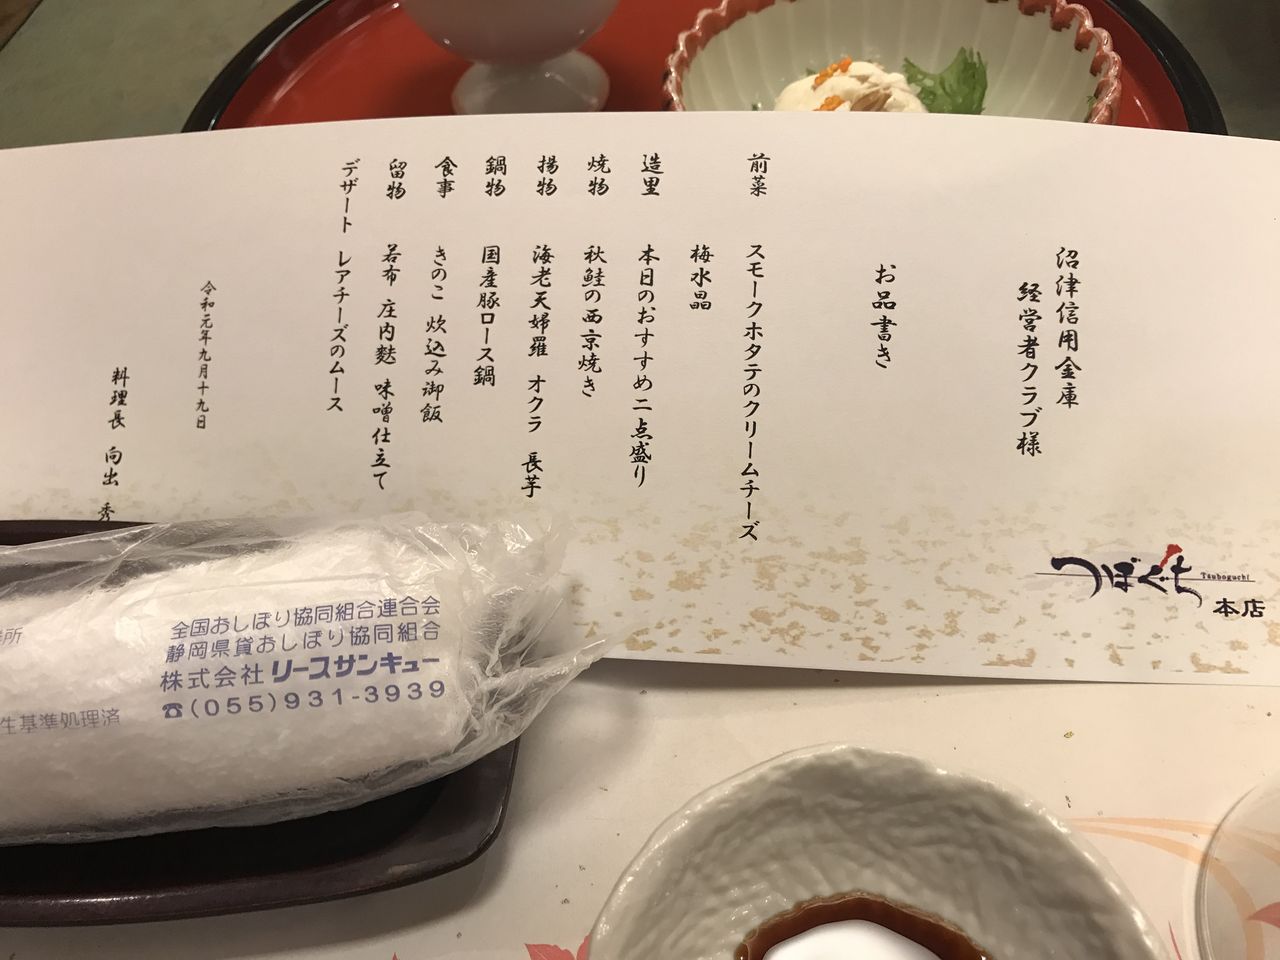 沼津信用金庫
経営者クラブ様
お品書き
前菜 スモークホタテのクリームチーズ
梅水晶
造里 本日のおすすめ二点盛り
焼物 秋鮭の西京焼き
揚物 海老天婦羅 オクラ 長芋
鍋物 国産豚ロース鍋
食事 きのこ 炊込み御飯
留物 若布 庄内麩 味噌仕立て
デザート レアチーズのムース
令和元年九月十九日
料理長 向出 秀
つぼぐち Tsuboguchi
本店
全国おしぼり協同組合連合会
静岡県貸おしぼり協同組合
株式会社リースサンキュー
☎(055)931-3939
所
生基準処理済